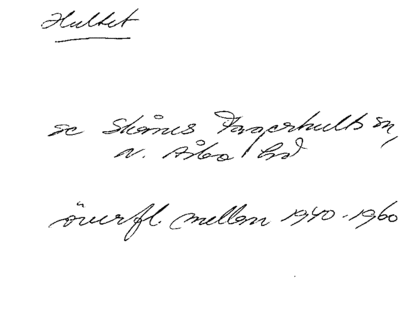 Hultet
se Skånes Fagerhults sn,
N. Åsbo hd
överfl. mellan 1940-1960